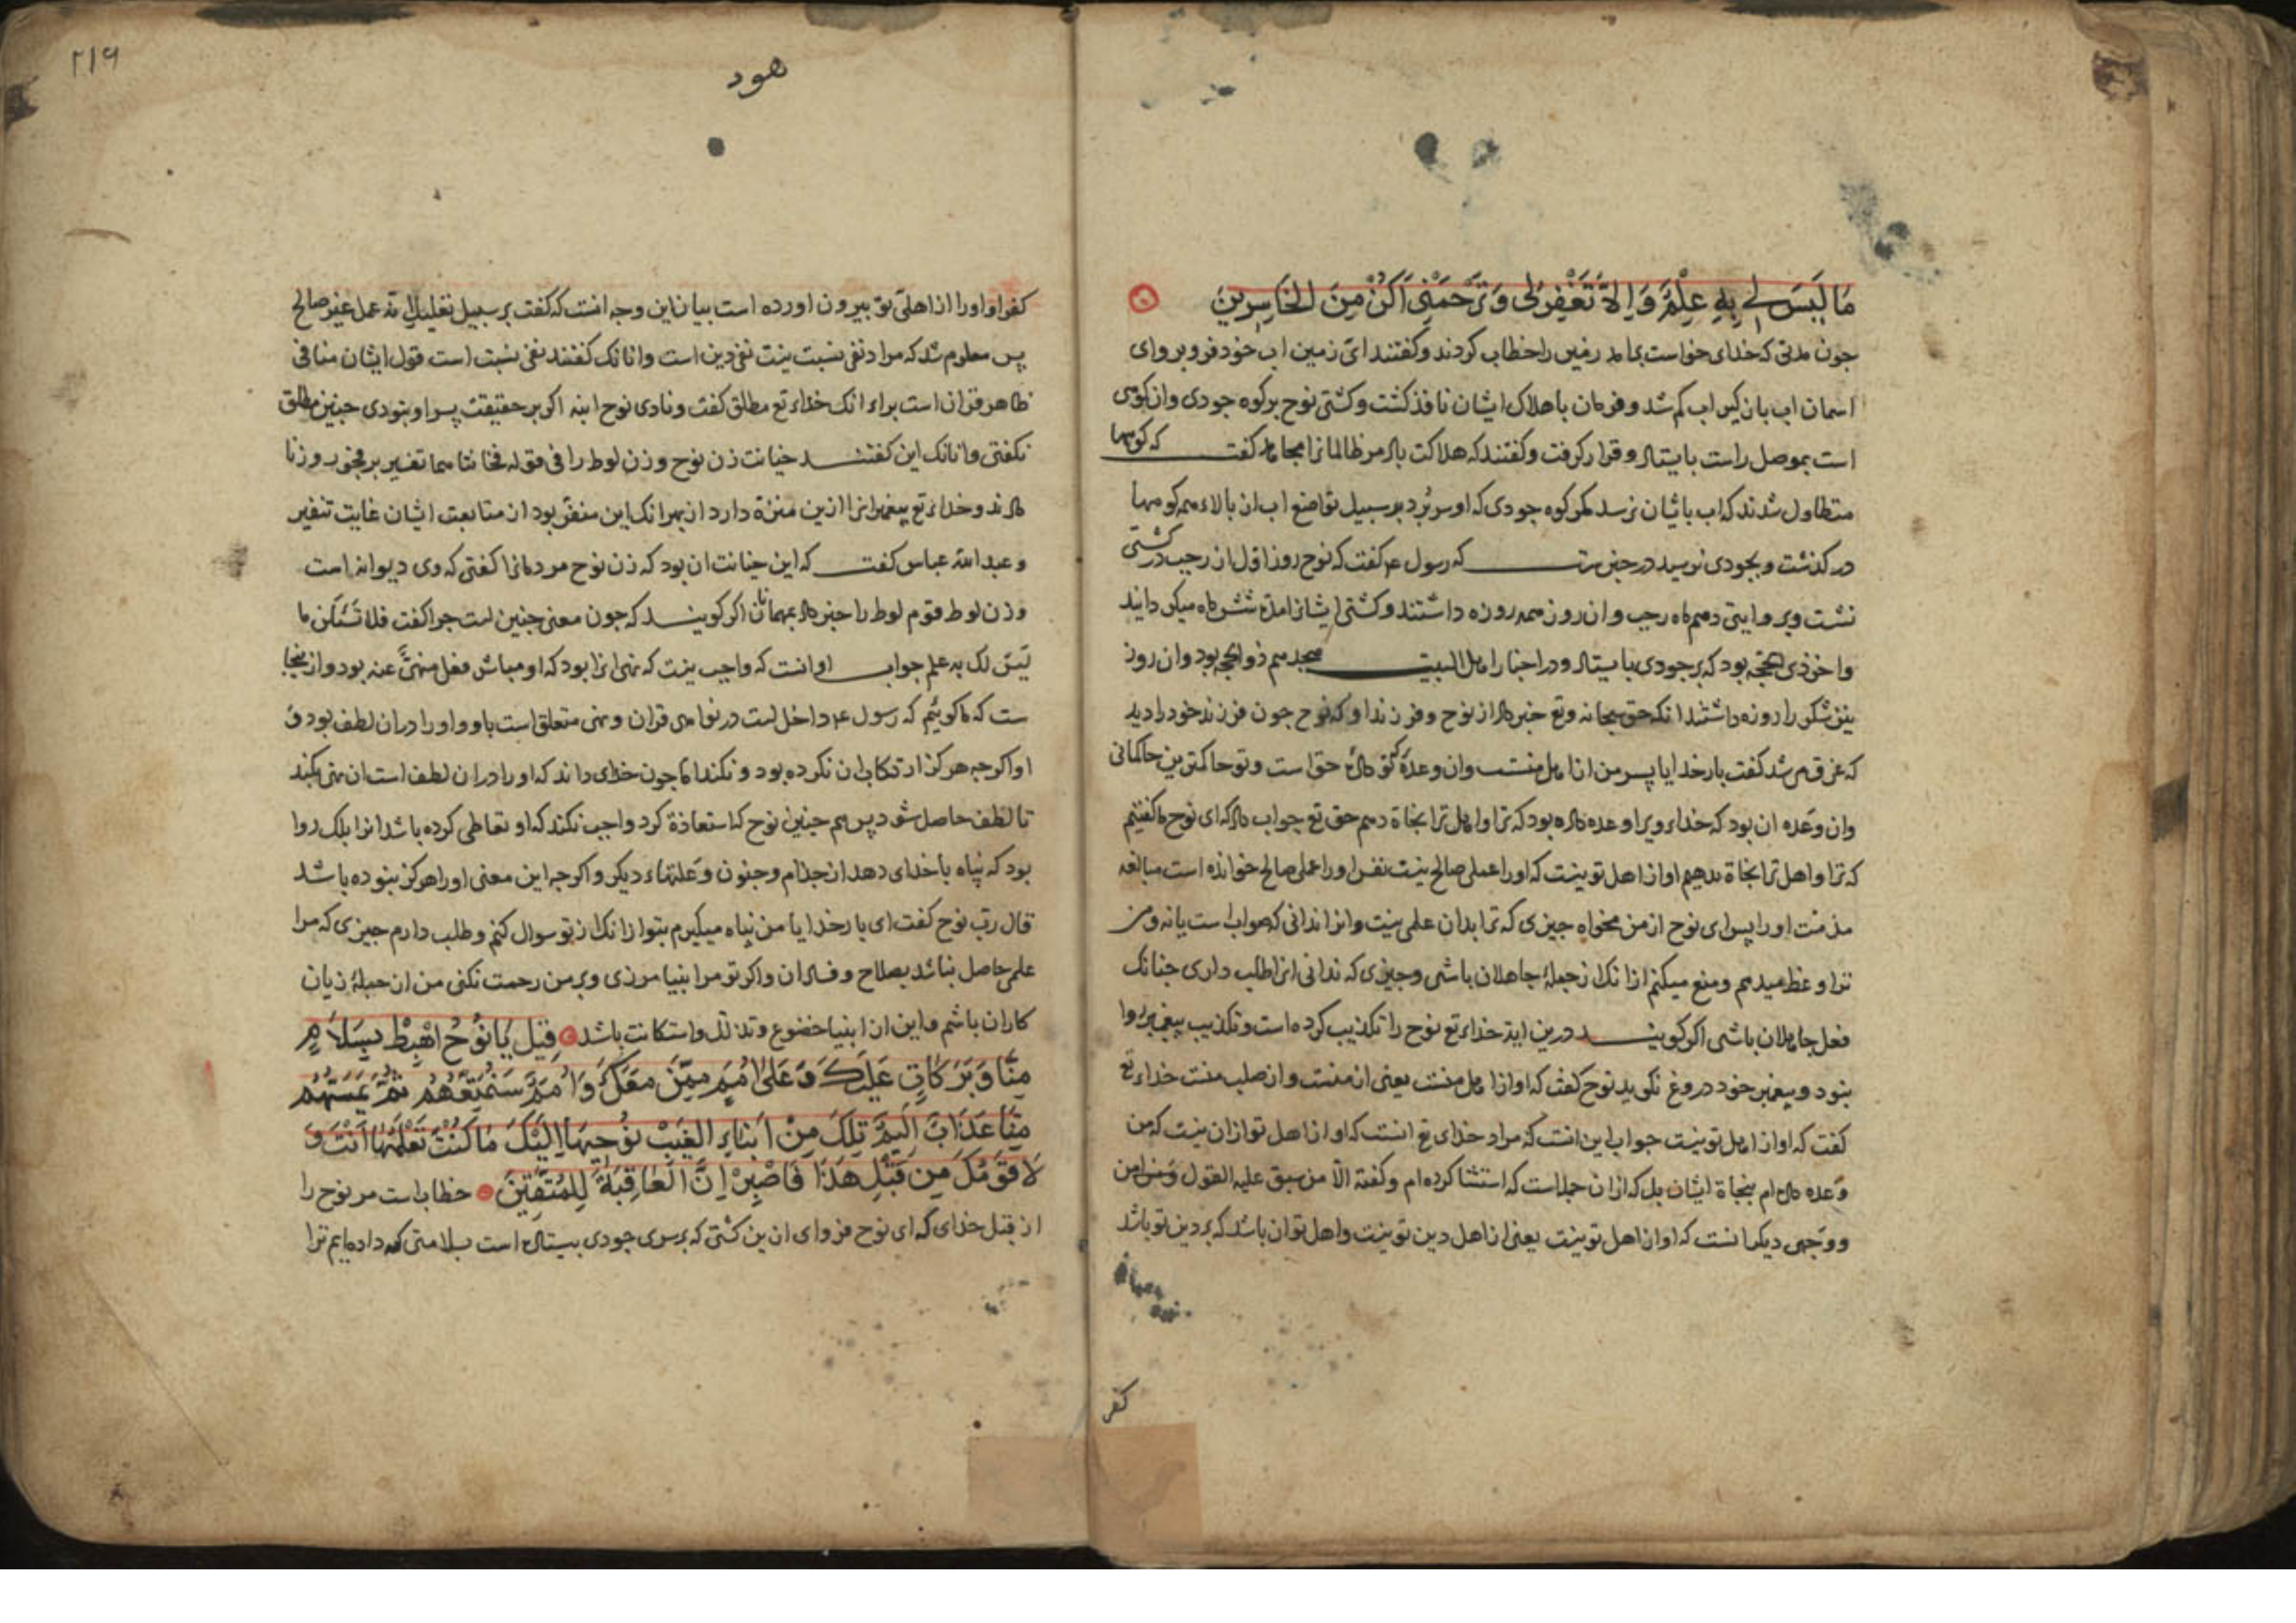 مَا لَيْسَ لِي بِهِ عِلْمٌ وَاِلَّا تَغْفِرْلِی وَتَرْحَمْنِی اَكُنْ مِنَ الْخَاسِرِينَ
جون مدتی که خدای خواست بامد زمین را خطاب کردند و کفتند ای زمین اب خود فرو بر و ای
اسمان اب بازکیر اب کم شد و فرمان باهلاک ایشان نافذ کشت و کشتی نوح بر کوه جودی و ان کوهی
است بموصل راست بایستاد و قرار کرفت و کفتند که هلاکت باد مر ظالمانرا مجاهد کفت که کوهها
متطاول شدند که اب باشان نرسد مکر کوه جودی که او سر برد بر سبیل تواضع اب از بالاء همه کوهها
در کذشت و بجودی نرسید در خبرست که رسول ع کفت که نوح روز اول از رجب در کشتی
نشست و بروایتی دهم ماه رجب و ان روز همه روزه داشتند و کشتی ایشانرا مدة شش ماه میکردانید
واخر ذی الحجه بود که بر جودی بایستاد و در اخبار اهل البیت هجدهم ذوالحجه بود و ان روز
بنزشکر را روزه داشتند انکه حق سبحانه وتع خبر داد از نوح و فرزند او که نوح جون فرزند خود را دید
که غرق می شد کفت بار خدایا پسر من از اهل منست و ان وعدۀ که تو دادۀ حق است و تو حاکمترین حاکمانی
وان وعده ان بود که خداء ویرا وعده داده بود که ترا و اهل ترا نجاة دهم حق تع جواب داد که ای نوح ما کفتیم
که ترا و اهل ترا نجاة بدهیم او از اهل تو نیست که او را عملی صالح نیست نفس او را عملی صالح خوانده است مبالغه
مذمت او را پس ای نوح از من مخواه جیزی که ترا بدان علمی نیست و انرا ندانی که صواب است یا نه و من
ترا وعظ میدهم و منع میکنم از انک از جملۀ جاهلان باشی و جیزی که ندانی انرا طلب داری جنانک
فعل جاهلان باشی اکر کویند درین ایة خداء تع نوح را تکذیب کرده است و تکذیب پیغمبر روا
نبود و پیغمبر خود دروغ نکوید نوح کفت که او از اهل منست یعنی از منست و از صلب منست خداء تع
کفت که او از اهل تو نیست جواب این انست که مراد خدای تع انست که او از اهل تو از ان نیست که من
وعده داده ام بنجاة ایشان بل که از ان جمله است که استثنا کرده ام و کفته الّا من سبق علیه القول
و وجهی دیکر انست که او از اهل تو نیست یعنی از اهل دین تو نیست و اهل تو ان باشد که بر دین تو باشد
کفر
۲۱۹
هود
کفر او او را از اهلی تو بیرون اورده است بیان این وجه انست که کفت بر سبیل تعلیل انه عمل غیر صالح
پس معلوم شد که مراد نفی نسبت نیست نفی دین است و انانک کفتند نفی نسبت است قول ایشان منافی
ظاهر قران است براء انک خداء تع مطلق کفت و نادی نوح ابنه اکر بر حقیقت پسر او نبودی جنین مطلق
نکفتی و انانک این کفتند خیانت زن نوح و زن لوط را فی قوله فخانتاهما تفسیر بر فجور و زنا
داند و خداء تع پیغمبرانرا ازین منزه دارد از بهر انک این منفر بود از متابعت ایشان غایت تنفیر
و عبد الله عباس کفت که این خیانت ان بود که زن نوح مردمانرا کفتی که وی دیوانه است
وزن لوط قوم لوط را خبر داد بمهمانان اکر کویند که جون معنی جنین است جرا کفت فلا تسئلن ما
لیس لک به علم جواب او انست که واجب نیست که نهی انرا بود که او مباشر فعل منهیٌّ عنه بود و از ینجا
ست که ما کوئیم که رسول ع داخل است در نواهی قران و نهی متعلق است باو و او را دران لطف بود و
او اکرجه هرکز ارتکاب ان نکرده بود و نکند اما جون خدای داند که او را دران لطف است ان نهی بکند
تا لطف حاصل شود پس هم جنین نوح که استعاذة کرد واجب نکند که او تعاطی کرده باشد انرا بلک روا
بود که پناه باخدای دهد از جذام و جنون و علتهاء دیکر و اکرجه این معنی او را هرکز نبوده باشد
قال رب نوح کفت ای بار خدایا من پناه میکیرم بتو از انک از تو سوال کنم و طلب دارم جیزی که مرا
علمی حاصل نباشد بصلاح و فساد ان و اکر تو مرا نیامرزی و بر من رحمت نکنی من از جملۀ زیان
کاران باشم و این از انبیا خضوع و تذلل و استکانت باشد قِيلَ يَا نُوحُ اهْبِطْ بِسَلَامٍ
مِنَّا وَبَرَكَاتٍ عَلَيْكَ وَعَلَىٰ اُمَمٍ مِمَّنْ مَعَكَ وَاُمَمٌ سَنُمَتِّعُهُمْ ثُمَّ يَمَسُّهُمْ
مِنَّا عَذَابٌ اَلِيمٌ تِلْكَ مِنْ اَنْبَاءِ الْغَيْبِ نُوحِيهَا اِلَيْكَ مَا كُنْتَ تَعْلَمُهَا اَنْتَ وَ
لَا قَوْمُكَ مِنْ قَبْلِ هَذَا فَاصْبِرْ اِنَّ الْعَاقِبَةَ لِلْمُتَّقِينَ خطاب است مر نوح را
از قبل خدای که ای نوح فرو ای ازین کشتی که بر سری جودی بیستاده است بسلامتی که داده ایم ترا